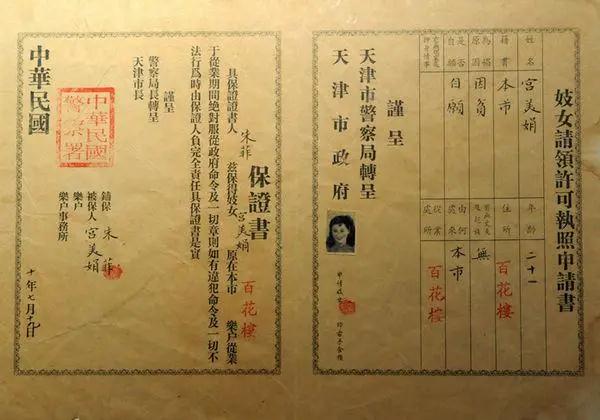 妓女請領許可執照申請書
姓名 宮美娟 年齡 二十一
籍貫 本市 住所 百花樓
為娼原因 因貧 無
是否自願 自願 由何處來 本市
從業處所 百花樓
謹呈
天津市警察局轉呈
天津市政府
保證書
具保證證書人 朱菲 茲保得妓女 宮美娟 原在本市 百花樓 樂户從業
于從業期間絕對服從政府命令及一切章則如有違犯命令及一切不
法行為時由保證人負完全責任具保證書是實
謹呈
警察局長轉呈
天津市長
鋪保 朱菲
被保人 宮美娟
樂户
樂户事務所
十年七月十九日
中華民國
中華民國
警察署